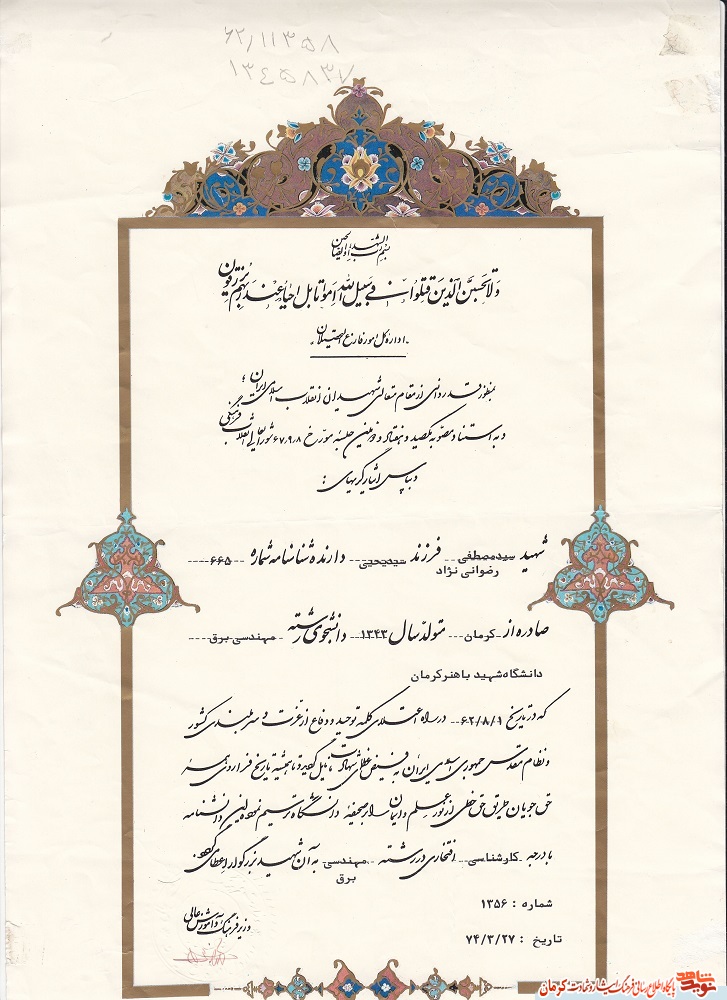 ۶۲٫۱۱۳۵۸
۱۳۴۵۸۳۷
بسم رب الشهداء و الصالحین
ولا تحسبن الذین قتلوا فی سبیل الله امواتا بل احیاء عند ربهم یرزقون
اداره کل امور فارغ التحصیلان
بمنظور قدردانی از مقام متعالی شهیدان انقلاب اسلامی ایران
و به استناد مصوبه یکصد و هفتاد و دومین جلسه مورخ ۶۷٫۹٫۸ شورایعالی انقلاب فرهنگی
و بپاس ایثارگریهای :
شهید سیدمصطفی رضوانی نژاد فرزند سیدیحیی دارنده شناسنامه شماره ۶۶۵
صادره از کرمان متولد سال ۱۳۴۳ دانشجوی رشته مهندسی برق
دانشگاه شهید باهنر کرمان
که در تاریخ ۶۲/۸/۱ در راه اعتلای کلمه توحید و دفاع از عزت و سربلندی کشور
و نظام مقدس جمهوری اسلامی ایران به فیض عظمای شهادت نایل گردید تا همیشه تاریخ فراروی همه
حق جویان طریق حق خطی از نور علم و ایمان را بر صحیفه دانشگاه ترسیم نموده این دانشنامه
با درجه کارشناسی افتخاری در رشته مهندسی برق به آن شهید بزرگوار اعطا می گردد
شماره : ۱۳۵۶
تاریخ : ۷۴/۳/۲۷
وزیر فرهنگ و آموزش عالی
نوید شاهد پایگاه اطلاع رسانی فرهنگ ایثار و شهادت کرمان